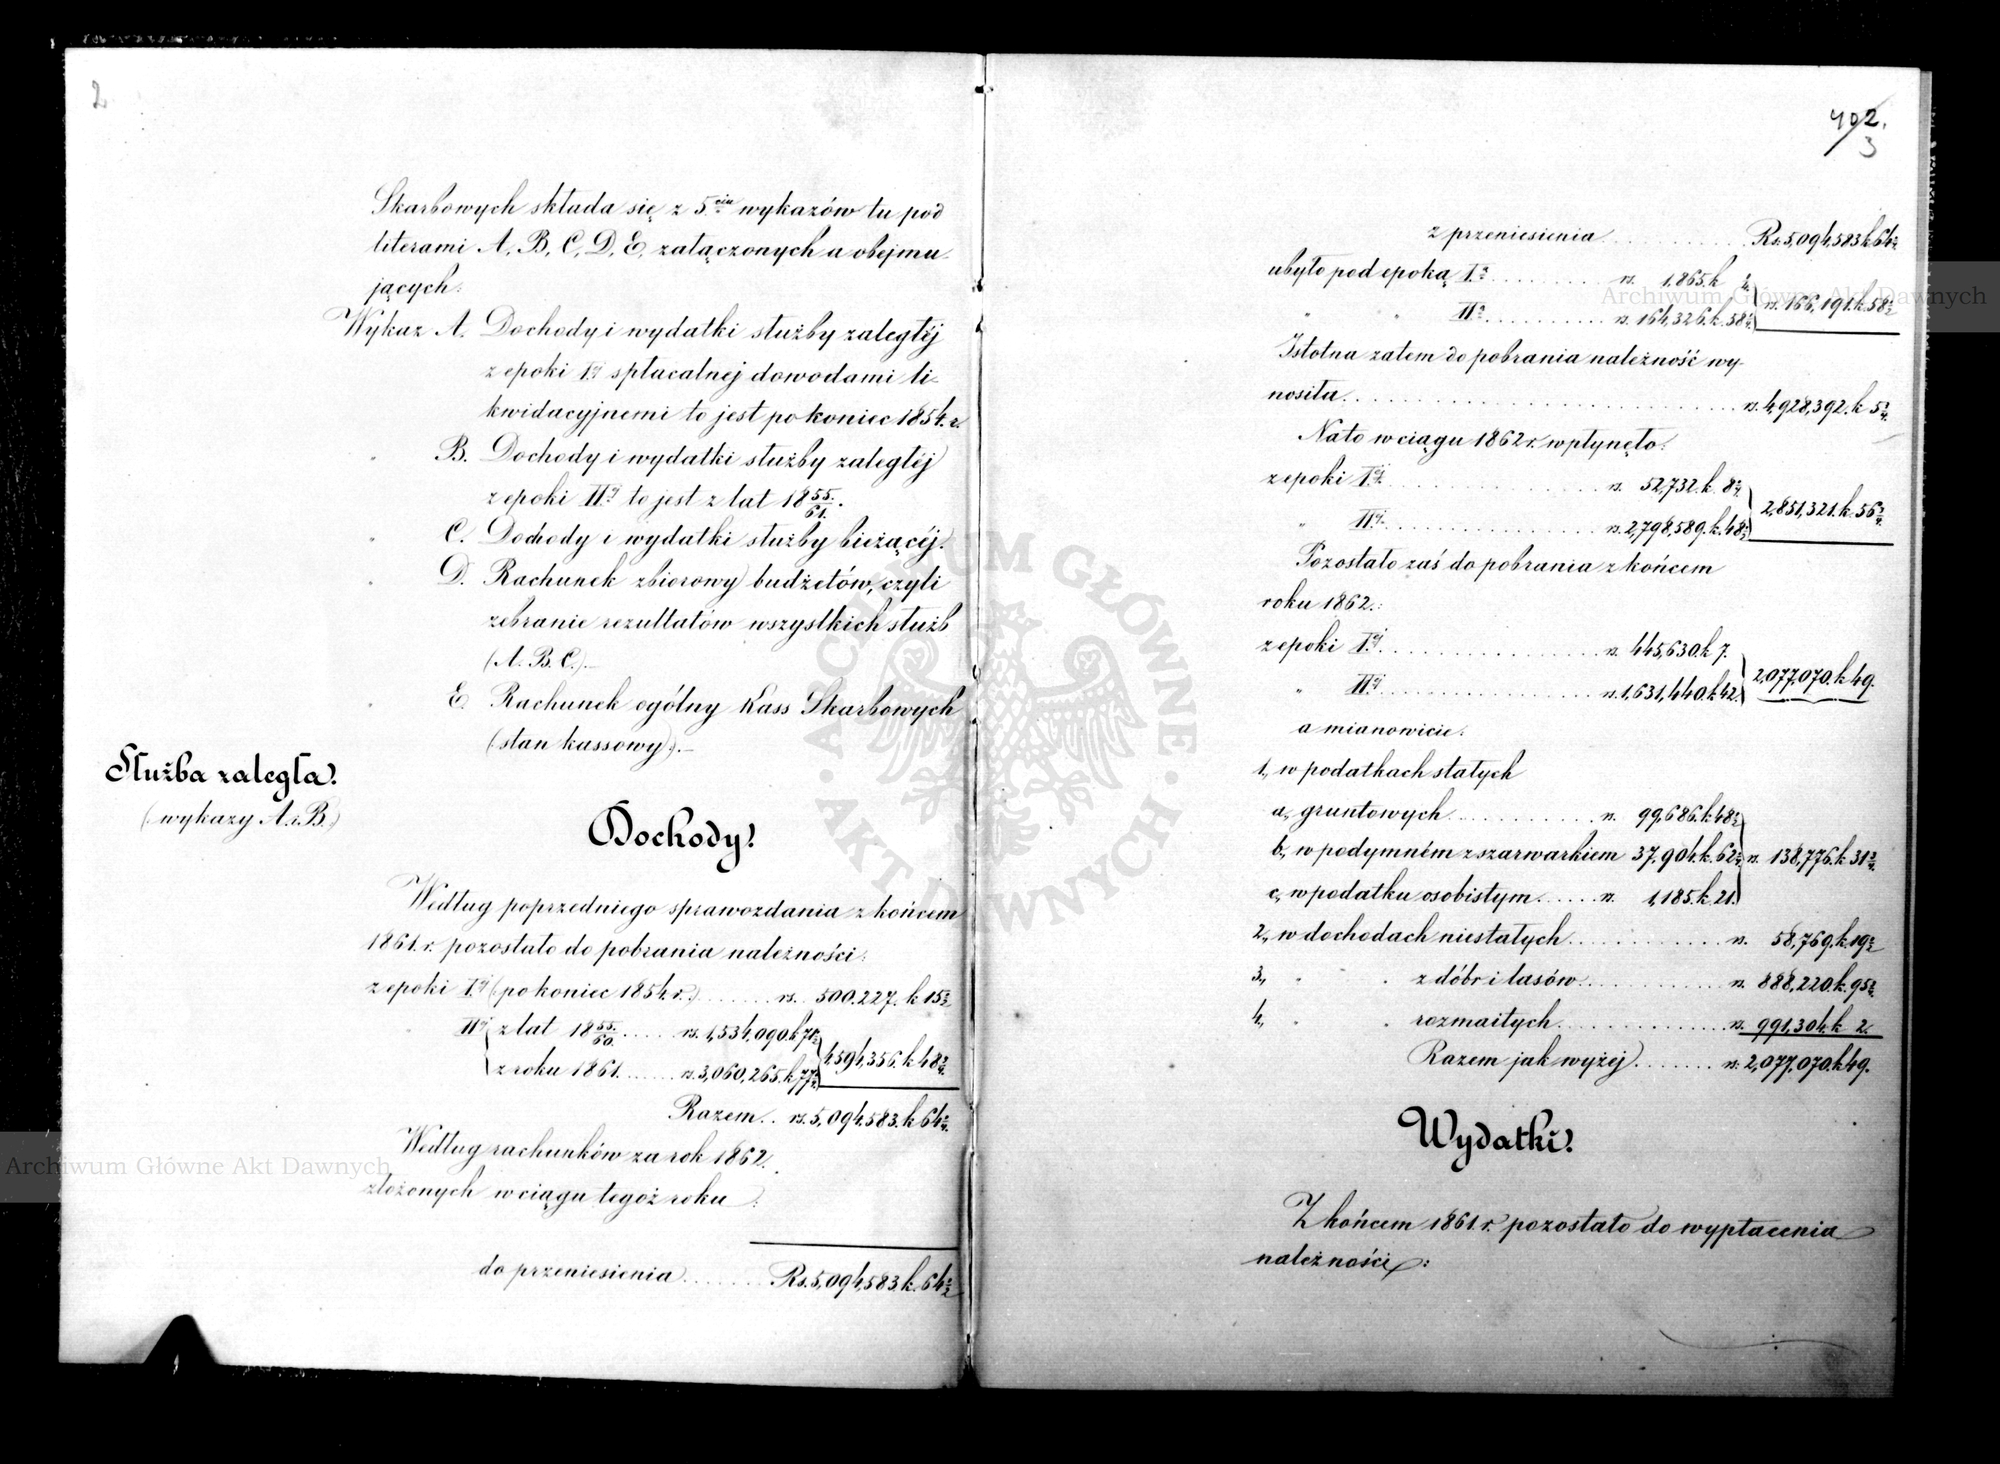 2
Skarbowych składa się z 5ciu wykazów tu pod
literami A, B, C, D, E, załączonych a obejmu-
jących:
Wykaz A. Dochody i wydatki służby zaległéj
z epoki Iéj spłacalnej dowodami li-
kwidacyjnemi to jest po koniec 1854. r.
" B. Dochody i wydatki służby zaległéj
z epoki IIéj to jest z lat 18 55/61.
" C. Dochody i wydatki służby bieżącéj.
" D. Rachunek zbiorowy budżetów, czyli
zebranie rezultatów wszystkich służb
(A. B. C.).—
" E Rachunek ogólny Kass Skarbowych
(stan kassowy).—
Służba zaległa.
(wykazy A. i B.)
Dochody.
Według poprzedniego sprawozdania z końcem
1861. r. pozostało do pobrania należności:
z epoki Iéj (po koniec 1854. r.) ....... rs. 500.227. k 15
" IIéj z lat 18 55/60 ...... rs. 1,534,090. k 71
z roku 1861. ...... rs. 3,060,265. k 77 4594,356. k 48
Razem .. rs. 5,094,583. k 64
Według rachunków za rok 1862.
złożonych w ciągu tegoż roku :
do przeniesienia ....... Rs. 5,094,583. k. 64
402.
3
z przeniesienia ........... Rs. 5,094,583 k 64
ubyło pod epoką Ią ......... rs. 1,865. k
" " IIą .......... rs. 164,326. k. 58 rs. 166,191. k. 58
Istotna zatem do pobrania należność wy-
nosiła ............................. rs. 4,928,392. k 5
Na to w ciągu 1862 r. wpłynęło:
z epoki Iéj ................ rs. 52,732. k. 8
" IIéj ................ rs. 2,798,589. k. 48 2,851,321. k. 56
Pozostało zaś do pobrania z końcem
roku 1862.:
z epoki Iéj ................ rs. 445,630. k 7.
" IIéj ................ rs. 1,631,440. k 42. 2,077,070. k 49.
a mianowicie:
1., w podatkach stałych
a., gruntowych ........... rs. 99,686. k. 48
b., w podymném z szarwarkiem 37,904. k. 62 rs. 138,776. k 31
c., w podatku osobistym ...... rs. 1,185. k. 21.
2., w dochodach niestałych ............ rs. 58,769. k. 19
3., " " z dóbr i lasów ............ rs. 888,220. k. 95
4., " " rozmaitych ............ rs. 991,304. k 2.
Razem jak wyżej ....... rs. 2,077,070. k 49.
Wydatki.
Z końcem 1861. r. pozostało do wypłacenia
należności :
Archiwum Główne Akt Dawnych
Archiwum Główne Akt Dawnych
ARCHIWUM GŁÓWNE · AKT DAWNYCH ·